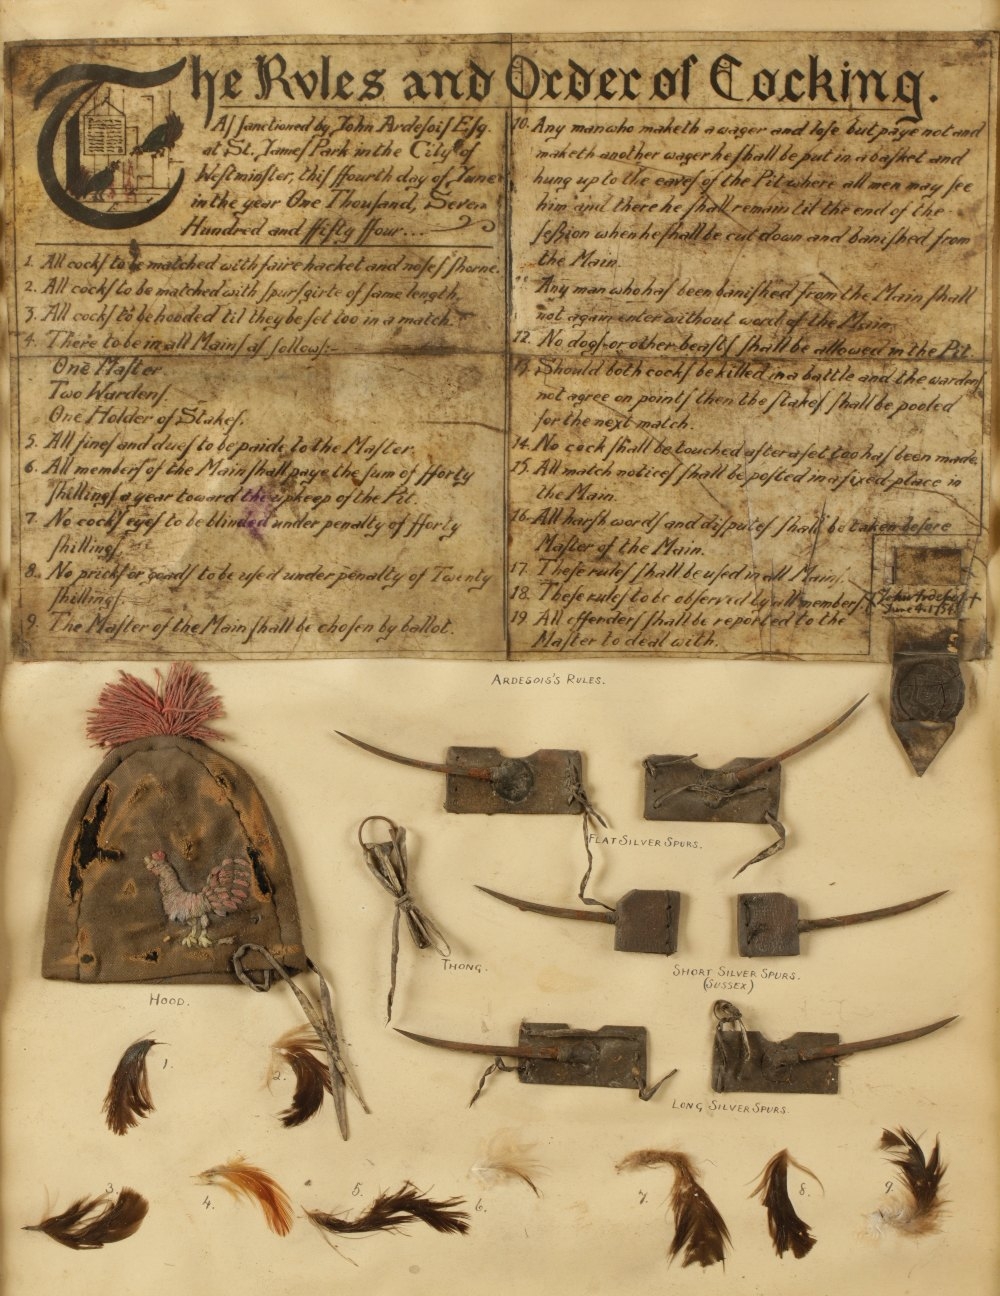 The Rvles and Order of Cocking.
As sanctioned by John Ardesois Esq.
at St. James Park in the City of
Westminster, this ffourth day of June
in the year One Thousand, Seven
Hundred and ffifty ffour...
1. All cocks to be matched with faire hacket and noses shorne.
2. All cocks to be matched with spurs girte of same length.
3. All cocks to be hooded til they be set too in a match.
4. There to be in all Mains as follows:-
One Master.
Two Wardens.
One Holder of Stakes.
5. All fines and dues to be paide to the Master.
6. All members of the Main shall paye the sum of fforty
shillings a year toward the upkeep of the Pit.
7. No cocks eyes to be blinded under penalty of fforty
shillings.
8. No pricks or goads to be used under penalty of Twenty
shillings.
9. The Master of the Main shall be chosen by ballot.
10. Any man who maketh a wager and lose but paye not and
maketh another wager he shall be put in a basket and
hung up to the eaves of the Pit where all men may see
him and there he shall remain til the end of the
session when he shall be cut down and banished from
the Main.
11 Any man who has been banished from the Main shall
not again enter without word of the Main.
12. No dogs or other beasts shall be allowed in the Pit.
13. Should both cocks be killed in a battle and the wardens
not agree on points then the stakes shall be pooled
for the next match.
14. No cock shall be touched after a set too has been made.
15. All match notices shall be posted in a fixed place in
the Main.
16. All harsh words and disputes shall be taken before
Master of the Main.
17. These rules shall be used in all Mains.
18. These rules to be observed by all members.
John Ardesois
June 4. 1754.
19. All offenders shall be reported to the
Master to deal with.
ARDESOIS'S RULES.
FLAT SILVER SPURS.
THONG.
SHORT SILVER SPURS.
(SUSSEX)
HOOD.
LONG SILVER SPURS.
1.
2.
3.
4.
5.
6.
7.
8.
9.